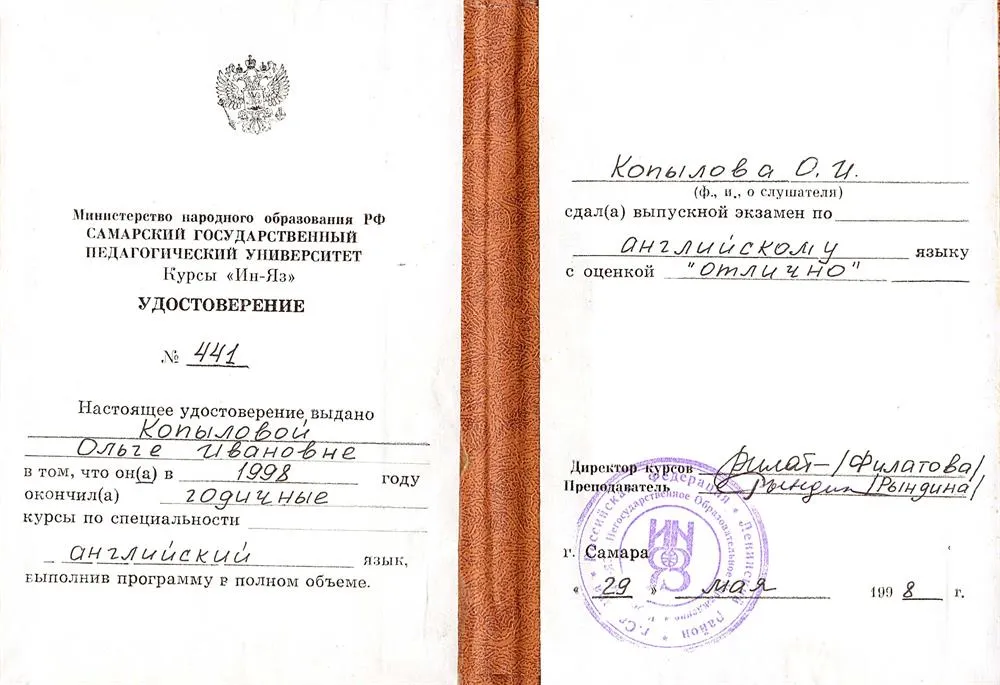 Министерство народного образования РФ
САМАРСКИЙ ГОСУДАРСТВЕННЫЙ
ПЕДАГОГИЧЕСКИЙ УНИВЕРСИТЕТ
Курсы «Ин-Яз»
УДОСТОВЕРЕНИЕ
№ 441
Настоящее удостоверение выдано
Копыловой
Ольге Ивановне
в том, что он(а) в 1998 году
окончил(а) годичные
курсы по специальности
английский язык,
выполнив программу в полном объеме.
Копылова О. И.
(ф., и., о слушателя)
сдал(а) выпускной экзамен по
английскому языку
с оценкой "отлично"
Директор курсов Филат- /Филатова/
Преподаватель Рындин /Рындина/
г. Самара
« 29 » мая 1998 г.
Российская Федерация * Ленинский район * г.
Негосударственное Образовательное
ИН
ЯЗ